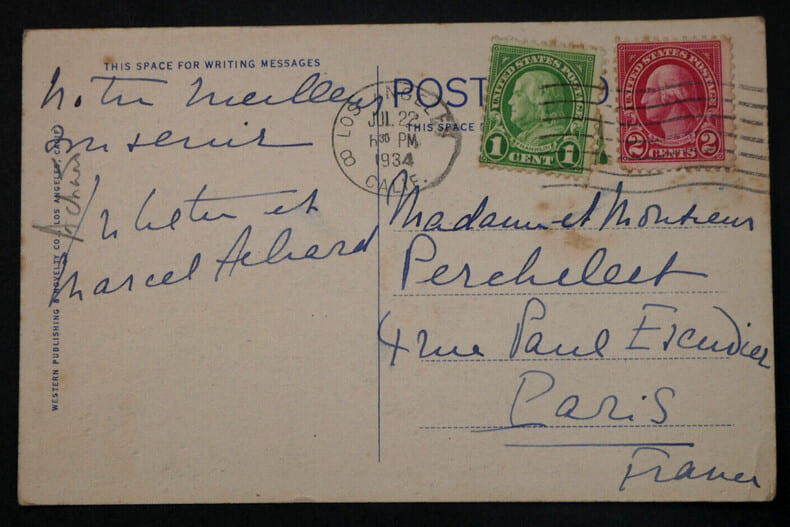 THIS SPACE FOR WRITING MESSAGES
Notre meilleur
souvenir
Juliette et
Marcel Achard
Achard
WESTERN PUBLISHING & NOVELTY CO., LOS ANGELES, CALIF.
POST
THIS SPACE
LOS ANGELES
8
JUL 22
6 30 PM
1934
CALIF.
UNITED STATES POSTAGE
FRANKLIN
1 CENT 1
UNITED STATES POSTAGE
2 CENTS 2
Madame et Monsieur
4 rue Paul Escudier
Paris
France